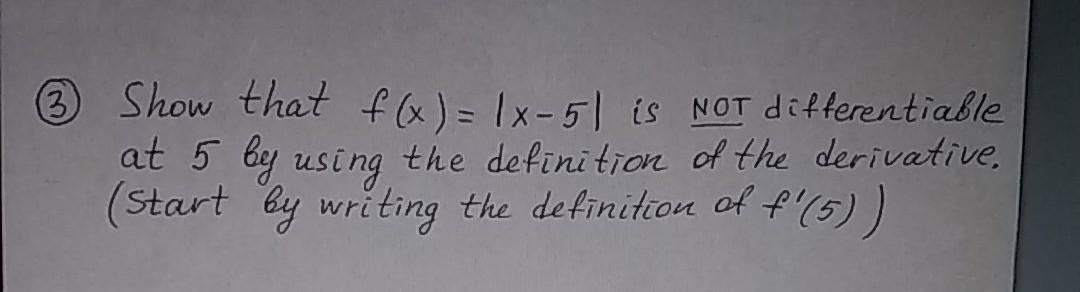 ③ Show that f(x) = |x-5| is NOT differentiable
at 5 by using the definition of the derivative.
(Start by writing the definition of f'(5))